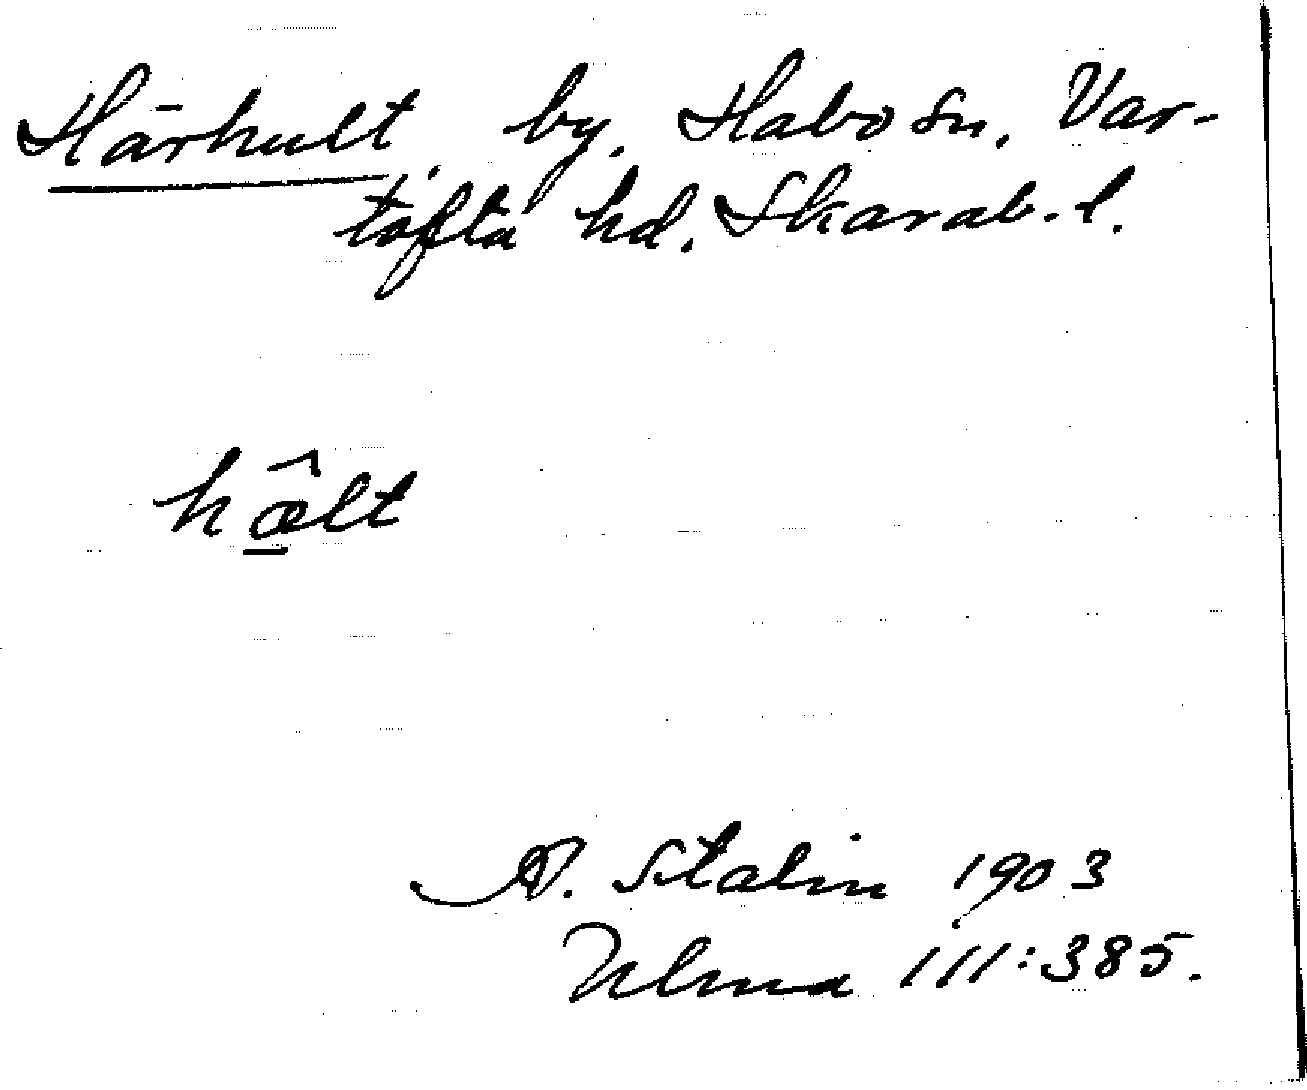 Härhult, by, Habo sn, Var-
tofta hd, Skarab. l.
hœ̂lt
A. Stalin 1903
Ulma 111:385.